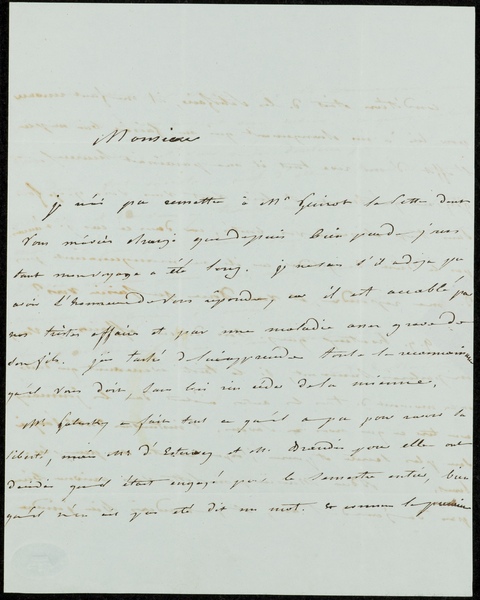 Monsieur
je n'ai pu remettre à Mr Guizot la lettre dont
vous m'aviez chargé que depuis bien peu de jours
tant mon voyage a été long. je ne sais s'il a déjà pu
avoir l'honneur de vous répondre, car il est accablé par
nos tristes affaires et par une maladie assez grave de
son fils. j'ai taché de lui apprendre toute la reconnaissance
qu'il vous doit, sans lui rien de la mienne.
Mr a fait tout ce qu'il a pu pour ravoir sa
liberté, mais Mr d' et M. pour elle ont
décidé qu'il était engagé pour le semestre entier, bien
qu'il n'en ait pas été dit un mot. et comme la